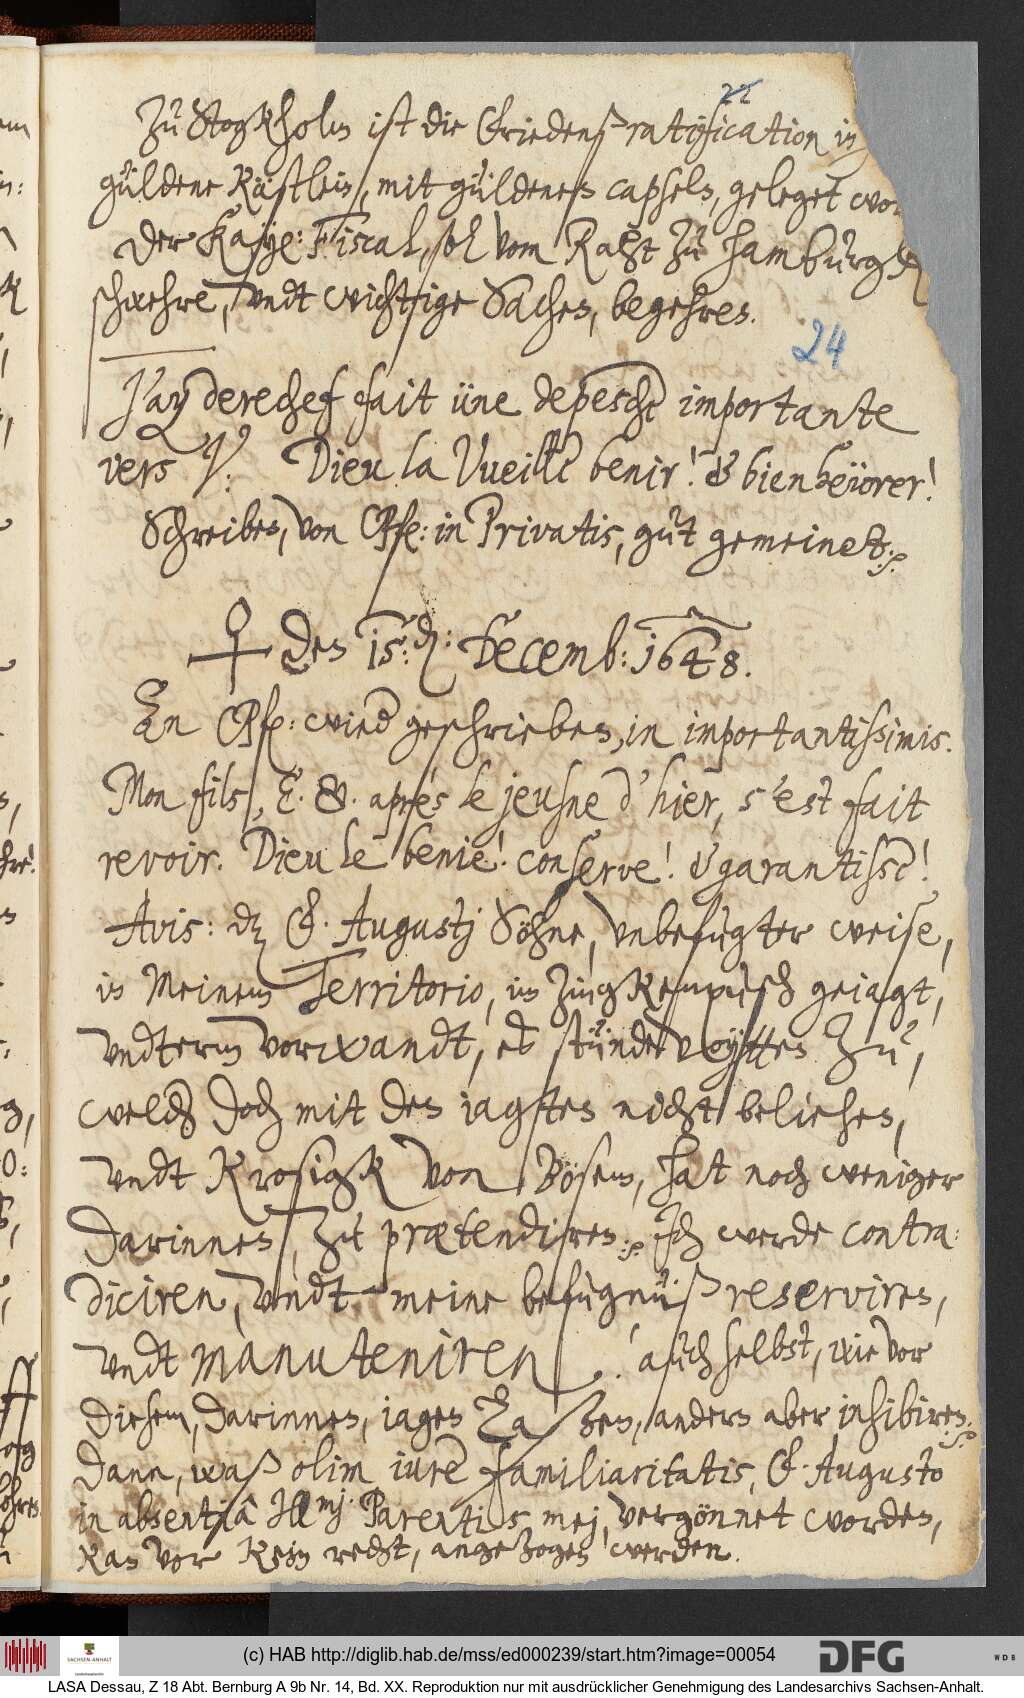 22
Zu Stogkholm ist die Friedenßratification in
güldene Kästlein, mit güldenen capseln, geleget wor
Der Kayße: Fiscal, sol vom Raht zu Hamburgk
schwehre, undt wichtige Sachen, begehren.
24
J'ay derechef fait üne depeschе importante
vers V: Dieu la vueille benir! & bienheürer!
Schreiben, von in Privatis, gut gemeinet.
Den 15. Decemb: 1648.
An wied geschrieben, in importantissimis.
Mon fils, E. & apres le jeusne d'hier, s'est fait
revoir. Dieu le benie! conserve! & garantisse!
Avis: dz F. Augustj Söhne, unbefugter weise,
in Meinem Territorio, im Zingkenpusch gejagt,
undterm vorwandt, es stünde zu,
welches doch mit den jagten nicht beliehen,
undt Krosigk von Bösem, hat noch weniger
darinnen, zu prætendiren. Ich werde contra:
diciren, undt meine befugnüß reserviren,
undt manuteniren. auch selbst, wie vor
diesem, darinnen, jagen laßen, anders aber inhibiren.
Dann, waß olim iure familiaritatis, F. Augusto
in absentiâ Illmj. Parentis mej, vergönnet worden,
kan vor kein recht, angezogen werden.
(c) HAB http://diglib.hab.de/mss/ed000239/start.htm?image=00054
SACHSEN-ANHALT
DFG
WDB
LASA Dessau, Z 18 Abt. Bernburg A 9b Nr. 14, Bd. XX. Reproduktion nur mit ausdrücklicher Genehmigung des Landesarchivs Sachsen-Anhalt.